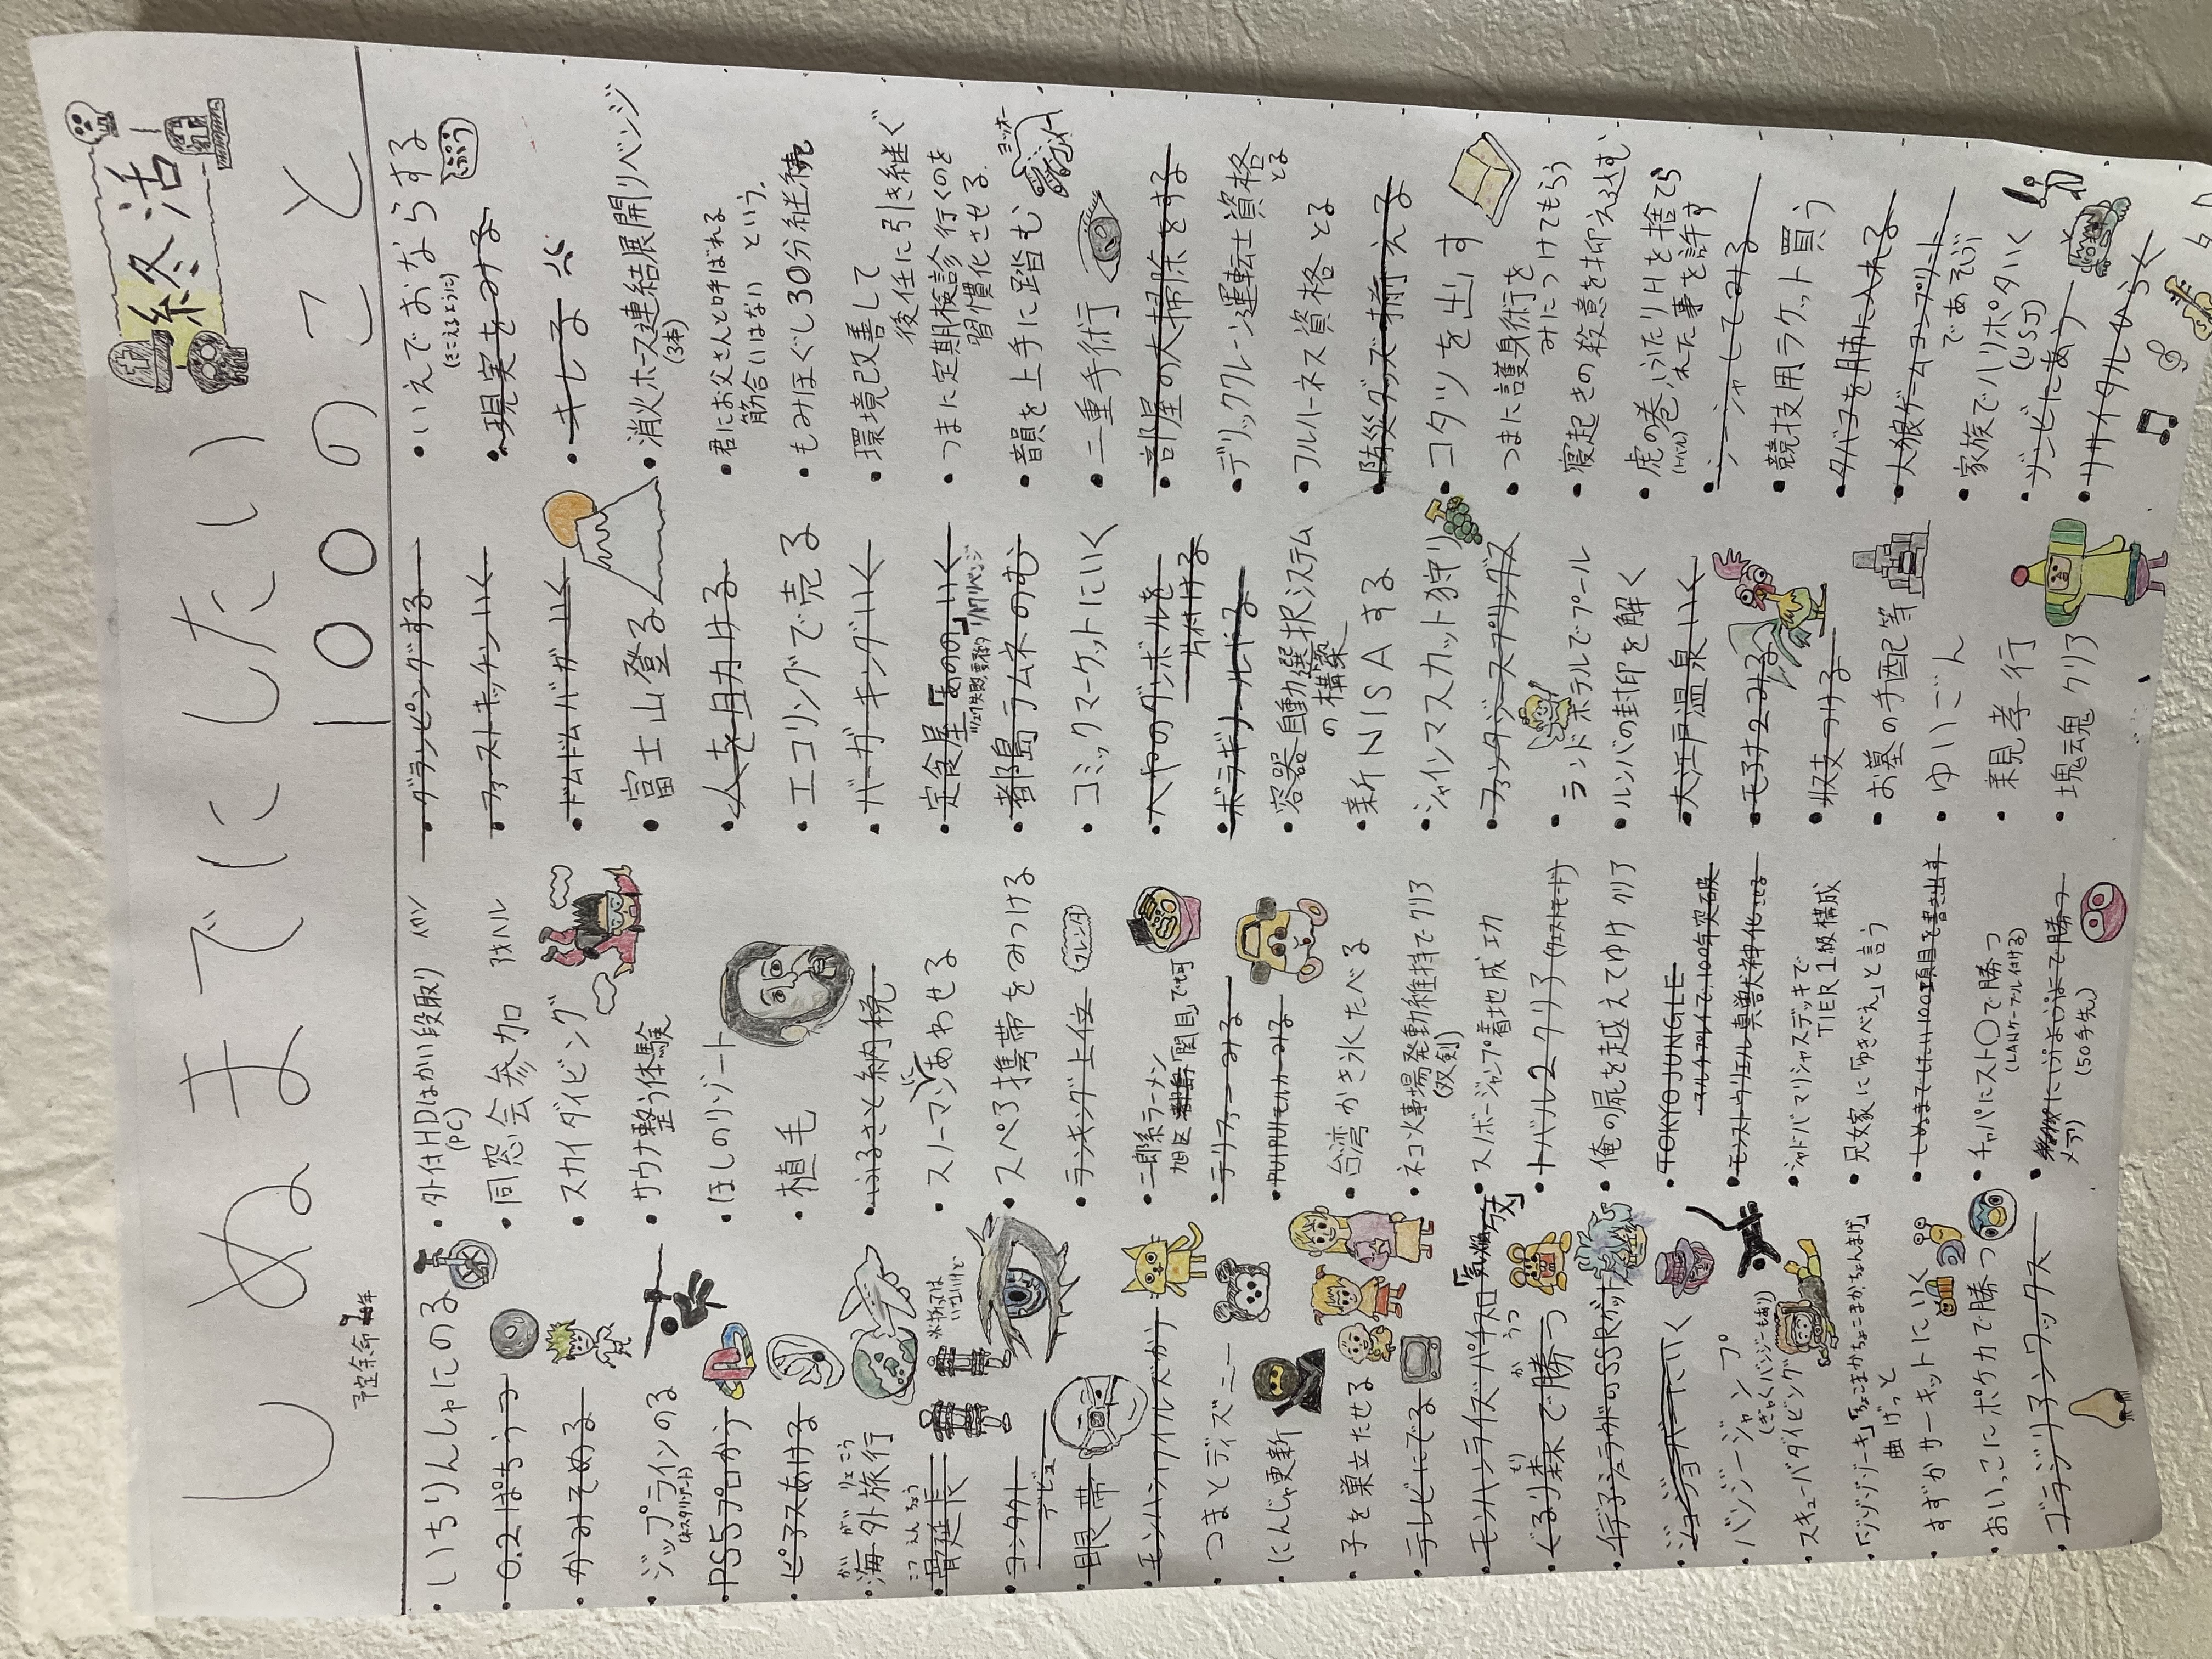 しぬまでにしたい
100のこと
終活
予定余命
・いちりんしゃにのる
・0.2ぱちうつ
・かみそめる
・ジップラインのる
・PS5プロかう
・ピアスあける
がいりょこう
・海外旅行
こつえんちょう
・骨延長
・コンタクト
デビュー
・眼帯
・モンハンワイルズかう
・つまとディズニー
・にんじゃ更新
・子を巣立たせる
・テレビにでる
・モンハンライズパチスロ
もり か うつ
・ぐるり森で勝つ
・イデアシュラがのSSRゲット
・ジョジョバーにいく
・バンジージャンプ
(ぎゃくバンジーもあり)
・スキューバダイビング
・「ジゾジゾーキ」「ちょこまかちょこまか、ちょんまげ」
曲げっと
・すずかサーキットにいく
・おいっこにポケカで勝つ
・ブラジリアンワックス
・外付HDはかい段取り パソ
(PC)
・同窓会参加 アオハル
・スカイダイビング
・サウナ整う体験
・ほしのリゾート
・植毛
・ふるさと納税
・スノーマンにあわせる
・スペア携帯をみつける
・ランキング上位
フレンダ
・二郎系ラーメン
旭区「関目」で可
・テリファーみる
・PUIPUIモルカーみる
・台湾かき氷たべる
・ネコ火事場発動維持でクリア
(双剣)
・スノボージャンプ着地成功
・トバル2クリア(クエストモード)
・俺の屍を越えてゆけ クリア
・TOKYO JUNGLE
マルチプレイで、100年突破
・モンストウリエル真獣神化させる
・シャドバマリシャスデッキで
TIER1級構成
・兄嫁に「ゆきべえ」と言う
・しぬまでにしたい100項目を書き出す
・チャパにスト〇で勝つ
(LANケーブル付ける)
・にいじょうはで勝つ
メアリ (50手先)
・グランピングする
・ファーストキッチンいく
・ドムドムバーガーいく
・富士山登る
・人を助ける
・エコリングで売る
・バーガーキングいく
・定食屋「あの」いく
・都島ラムネのむ
・コミックマーケットにいく
・へやのダンボールを
片付ける
・ボラギノールぬる
・容器自動選択システム
の構築
・新NISAする
・シャインマスカット狩り
・ファンタジースプリングス
・ランドホテルでプール
・ルンバの封印を解く
・大江戸温泉いく
・モアナ2みる
・収支つける
・お墓の手配等
・ゆいごん
・親孝行
・塊魂クリア
・いえでおならする
(きこえるように)
ぷう
・現実をみる
・キレる
・消火ホース連結展開リベンジ
(3本)
・君にお父さんと呼ばれる
筋合いはない という。
・もみほぐし30分継続
・環境改善して
後任に引き継ぐ
・つまに定期検診行くのを
習慣化させる。
・音韻を上手に踏む
・二重手術
・部屋の大掃除をする
・デリッククレーン運転士資格
とる
・フルハーネス資格とる
・防災グッズ揃える
・コタツを出す
・つまに護身術を
みにつけてもらう
・寝起きの殺意を抑え込む
・虎の巻、ふたりHを捨てら
れた事を許す
・シーシャしてみる
・競技用ラケット買う
・タバコを肺に入れる
・人狼ゲームコンプリート
であそぶ
・家族でハリポタいく
(USJ)
・ゾンビにあう
・リサイタルひらく